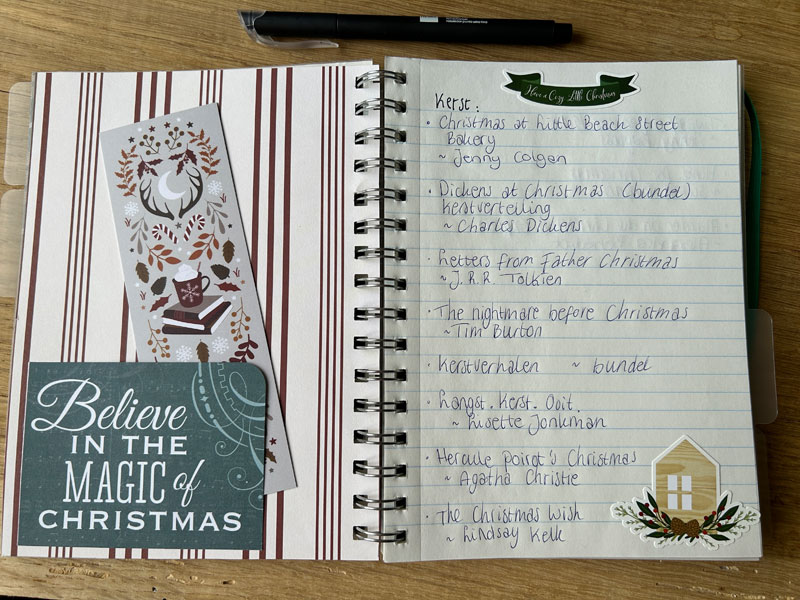 Believe
IN THE
MAGIC of
CHRISTMAS
Have a Cozy Little Christmas
Kerst:
· Christmas at Little Beach Street
Bakery
~ Jenny Colgan
· Dickens at Christmas (bundel)
kerstvertelling
~ Charles Dickens
· Letters from Father Christmas
~ J.R.R. Tolkien
· The nightmare before Christmas
~ Tim Burton
· Kerstverhalen ~ bundel
· Langst. Kerst. Ooit.
~ Lisette Jonkman
· Hercule Poirot's Christmas
~ Agatha Christie
· The Christmas Wish
~ Lindsay Kelk